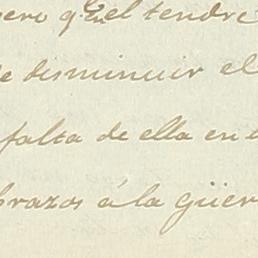 pero q.e el tendre
de disminuir el
falta de ella en
brazos á la güer